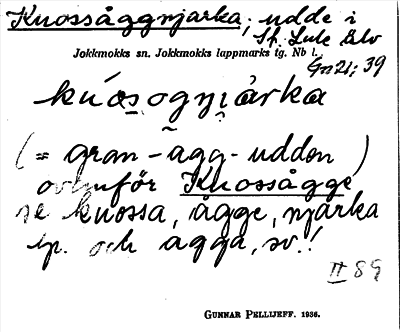 Knossåggnjarka; udde i
St. Lule älv
Jokkmokks sn. Jokkmokks lappmarks tg. Nb l.
Gn21; 39
kúo̯sogni̯àrka
(= gran-agg-udden)
ovanför Knossågge
se knossa, ågge, njarka
lp. och agga, sv.!
II 89
GUNNAR PELLIJEFF. 1936.